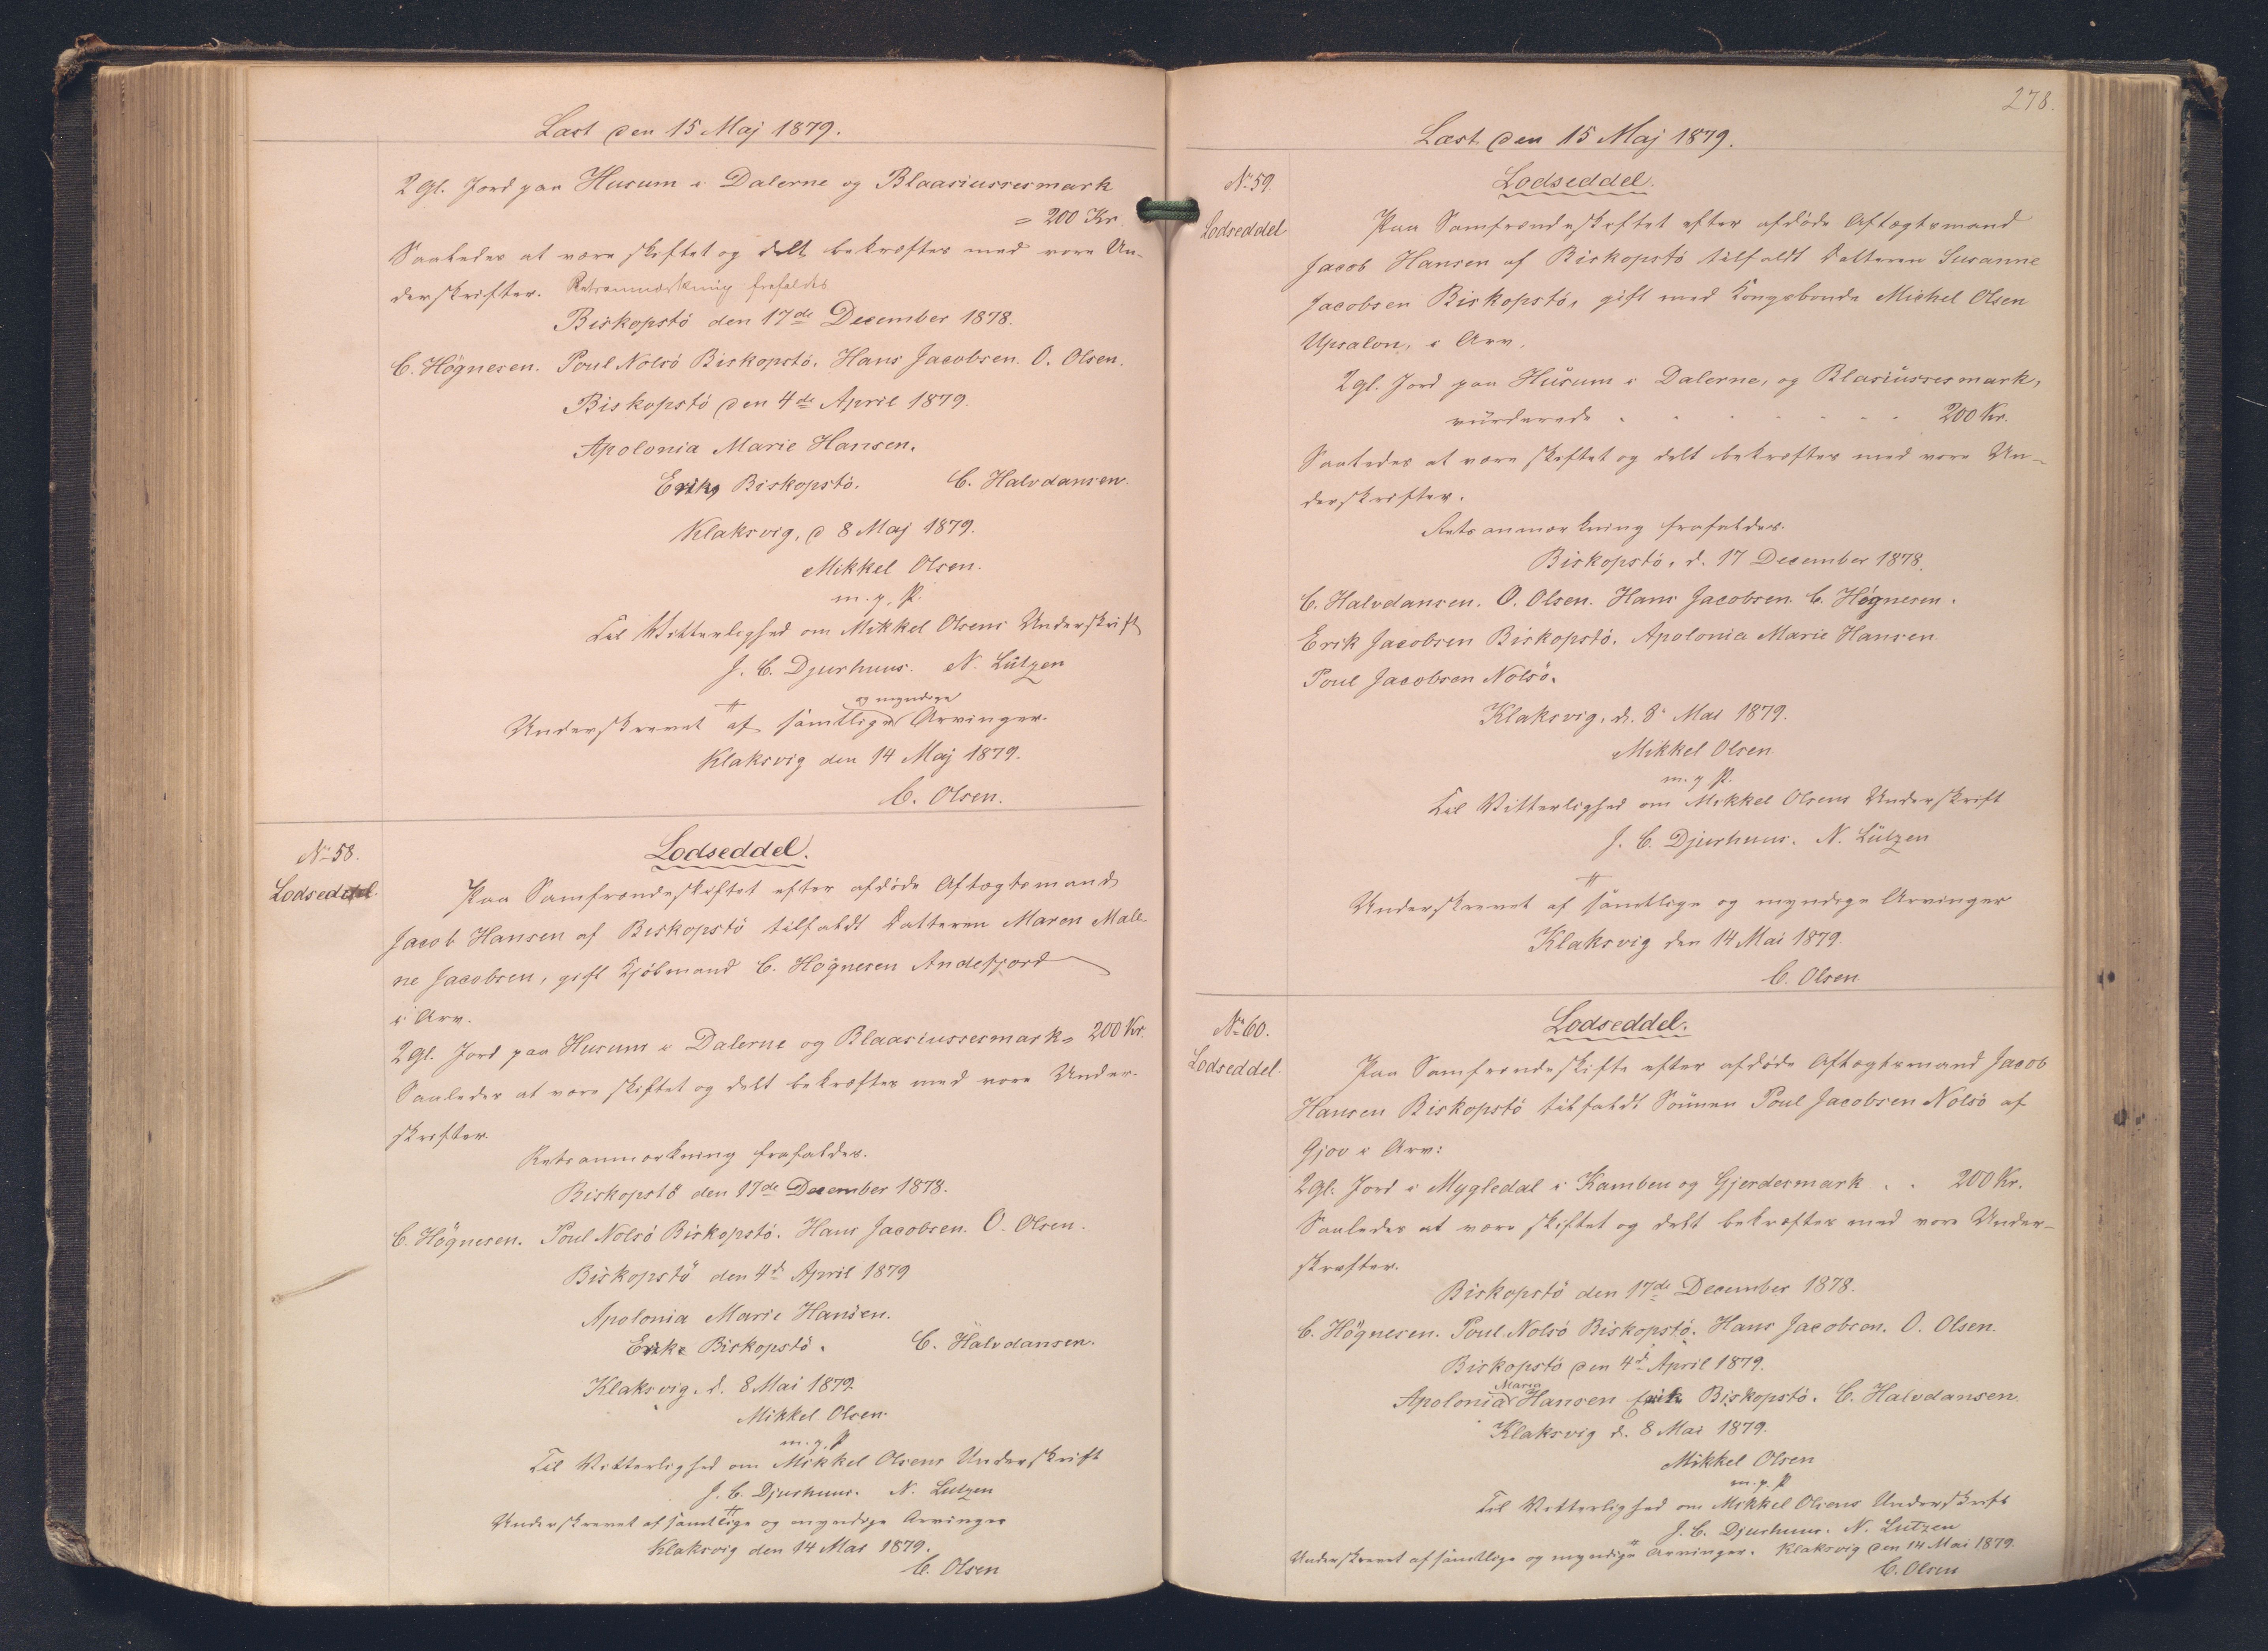 Læst den 15 Maj 1879.
2 Gl. Jord paa Husum i Dalerne og Blaasiussesmark
= 200 Kr.
Saaledes at være skiftet og delt bekræftes med vore Un-
derskrifter. Retsanmærkning frafaldes
Biskopstö den 17de December 1878.
C. Högnesen. Poul Nolsö Biskopstö. Hans Jacobsen. O. Olsen.
Biskopstö den 4de April 1879.
Apolonia Marie Hansen.
Erik Biskopstö. C. Halvdansen.
Klaksvig, d 8 Maj 1879.
Mikkel Olsen.
m. f. P.
Til Vitterlighed om Mikkel Olsens Underskrift
J. C. Djurhuus. N. Lützen
og myndige
Underskrevet af samtlige Arvinger.
Klaksvig den 14 Maj 1879.
C. Olsen.
No 58.
Lodseddel
Lodseddel.
Paa Samfrændeskiftet efter afdöde Aftægtsmand
Jacob Hansen af Biskopstö tilfaldt Datteren Maren Male-
ne Jacobsen, gift Kjöbmand C. Högnesen Andefjord
i Arv.
2 Gl. Jord paa Husum i Dalerne og Blaasiussesmark = 200 Kr.
Saaledes at være skiftet og delt bekræftes med vore Under-
skrifter.
Retsanmærkning frafaldes.
Biskopstö den 17de December 1878.
C. Högnesen. Poul Nolsö Biskopstö. Hans Jacobsen. O. Olsen.
Biskopstö den 4d April 1879
Apolonia Marie Hansen.
Erik Biskopstö. C. Halvdansen.
Klaksvig. d. 8 Mai 1879.
Mikkel Olsen.
m. f. P
Til Vitterlighed om Mikkel Olsens Underskrift
J. C. Djurhuus. N. Lutzen
Underskrevet af samtlige og myndige Arvinger
Klaksvig den 14 Mai 1879.
C. Olsen
278.
Læst den 15 Maj 1879.
No 59.
Lodseddel
Lodseddel.
Paa Samfrændeskiftet efter afdöde Aftægtsmand
Jacob Hansen af Biskopstö tilfaldt Datteren Susanne
Jacobsen Biskopstö, gift med Kongsbonde Michel Olsen
Upsalon, i Arv.
2 Gl. Jord paa Husum i Dalerne, og Blasiussesmark,
vurderede 200 Kr.
Saaledes at være skiftet og delt bekræftes med vore Un-
derskrifter.
Retsanmærkning frafaldes.
Biskopstö, d. 17 December 1878.
C. Halvdansen. O. Olsen. Hans Jacobsen. C. Högnesen.
Erik Jacobsen Biskopstö. Apolonia Marie Hansen
Poul Jacobsen Nolsö.
Klaksvig, d. 8 Mai 1879.
Mikkel Olsen
m. f P.
Til Vitterlighed om Mikkel Olsens Underskrift
J. C. Djurhuus. N. Lützen
Underskrevet af samtlige og myndige Arvinger
Klaksvig den 14 Mai 1879.
C. Olsen
No 60.
Lodseddel.
Lodseddel.
Paa Samfrændeskifte efter afdöde Aftægtsmand Jacob
Hansen Biskopstö tilfaldt Sönnen Poul Jacobsen Nolsö af
Gjov i Arv:
2 Gl. Jord i Mygledal i Kamben og Gjerdesmark . . 200 Kr.
Saaledes at være skiftet og delt bekræftes med vore Under-
skrifter.
Biskopstö den 17de December 1878.
C. Högnesen. Poul Nolsö Biskopstö. Hans Jacobsen. O. Olsen.
Biskopstö den 4d April 1879.
Maria
Apolonia Hansen Erik Biskopstö. C. Halvdansen.
Klaksvig d. 8 Mai 1879.
Mikkel Olsen
m. f. P
Til Vitterlighed om Mikkel Olsens Underskrift
J. C. Djurhuus. N. Lutzen
Underskrevet af samtlige og myndige Arvinger. Klaksvig den 14 Mai 1879.
C. Olsen